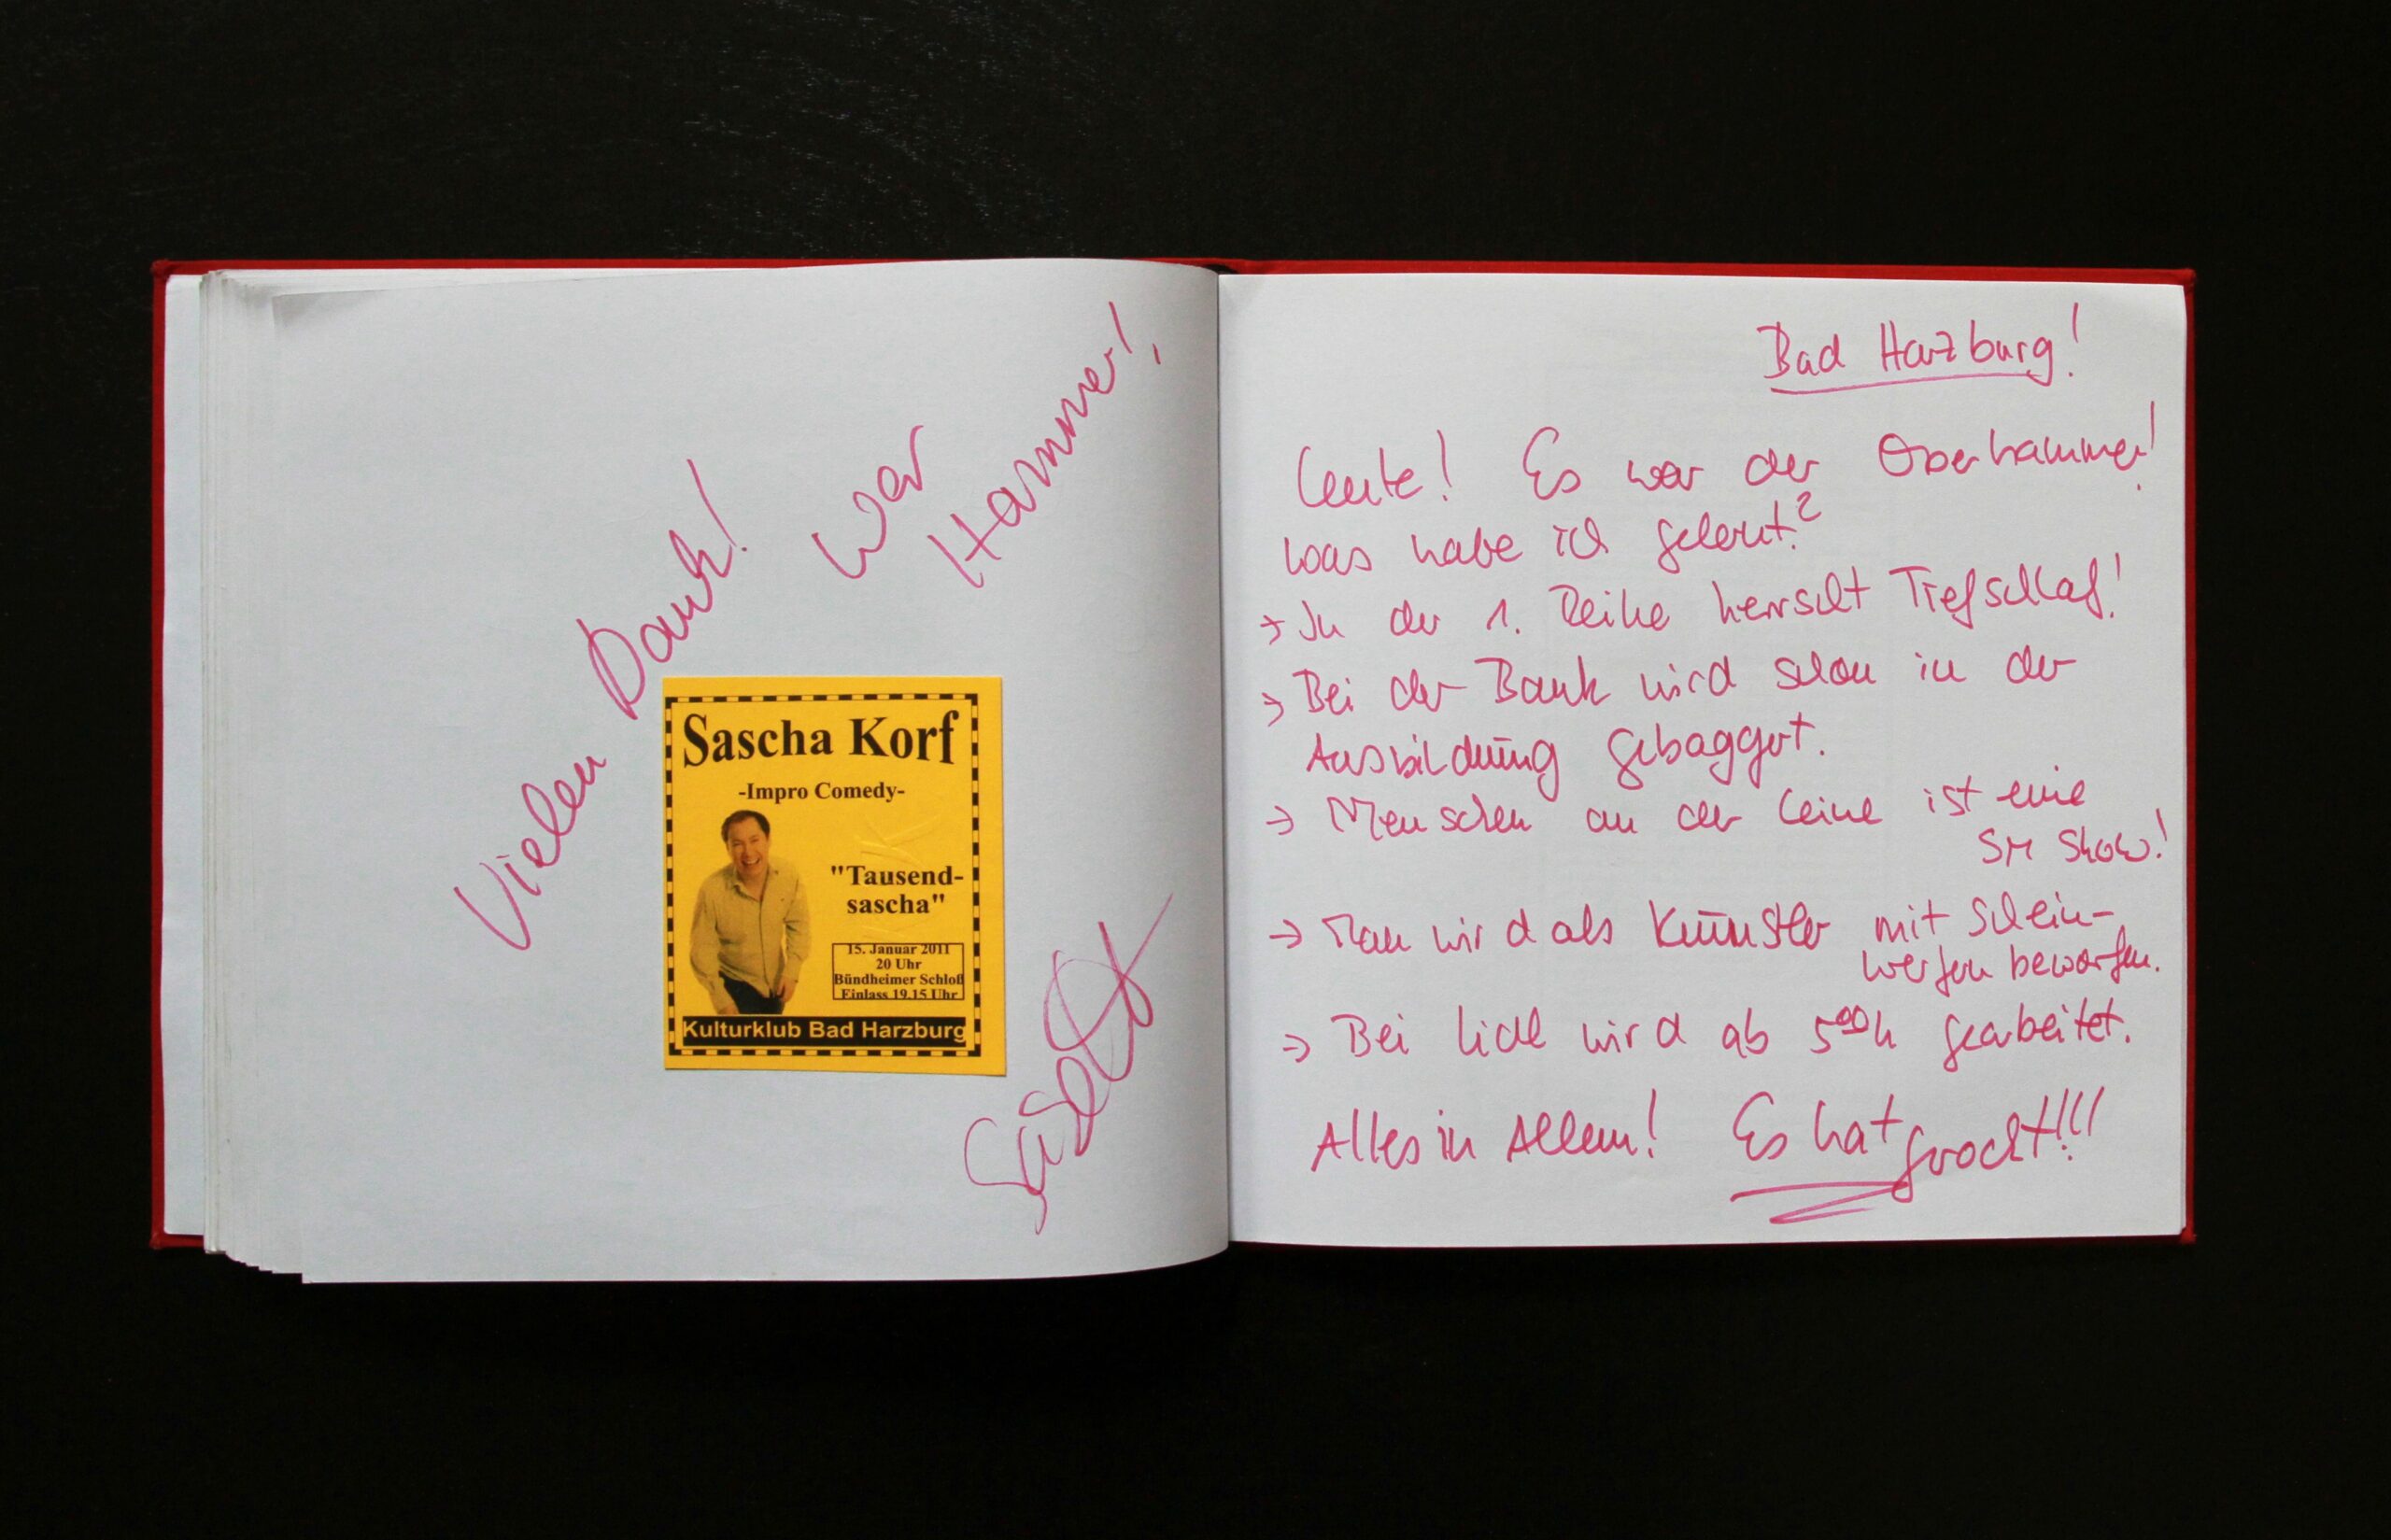 Vielen Dank!
war
Hammer!
Sascha Korf
-Impro Comedy-
"Tausend-
sascha"
15. Januar 2011
20 Uhr
Bündheimer Schloß
Einlass 19.15 Uhr
Kulturklub Bad Harzburg
Bad Harzburg!
Leute! Es war der Oberhammer!
was habe ich gelernt?
→ In der 1. Reihe herrscht Tiefschlaf!
→ Bei der Bank wird schon in der
Ausbildung gebaggert.
→ Menschen an der Leine ist eine
SM Show!
→ Man wird als Künstler mit Schein-
werfern beworfen.
→ Bei Lidl wird ab 5⁰⁰h gearbeitet.
Alles in Allem! Es hat gerockt!!!